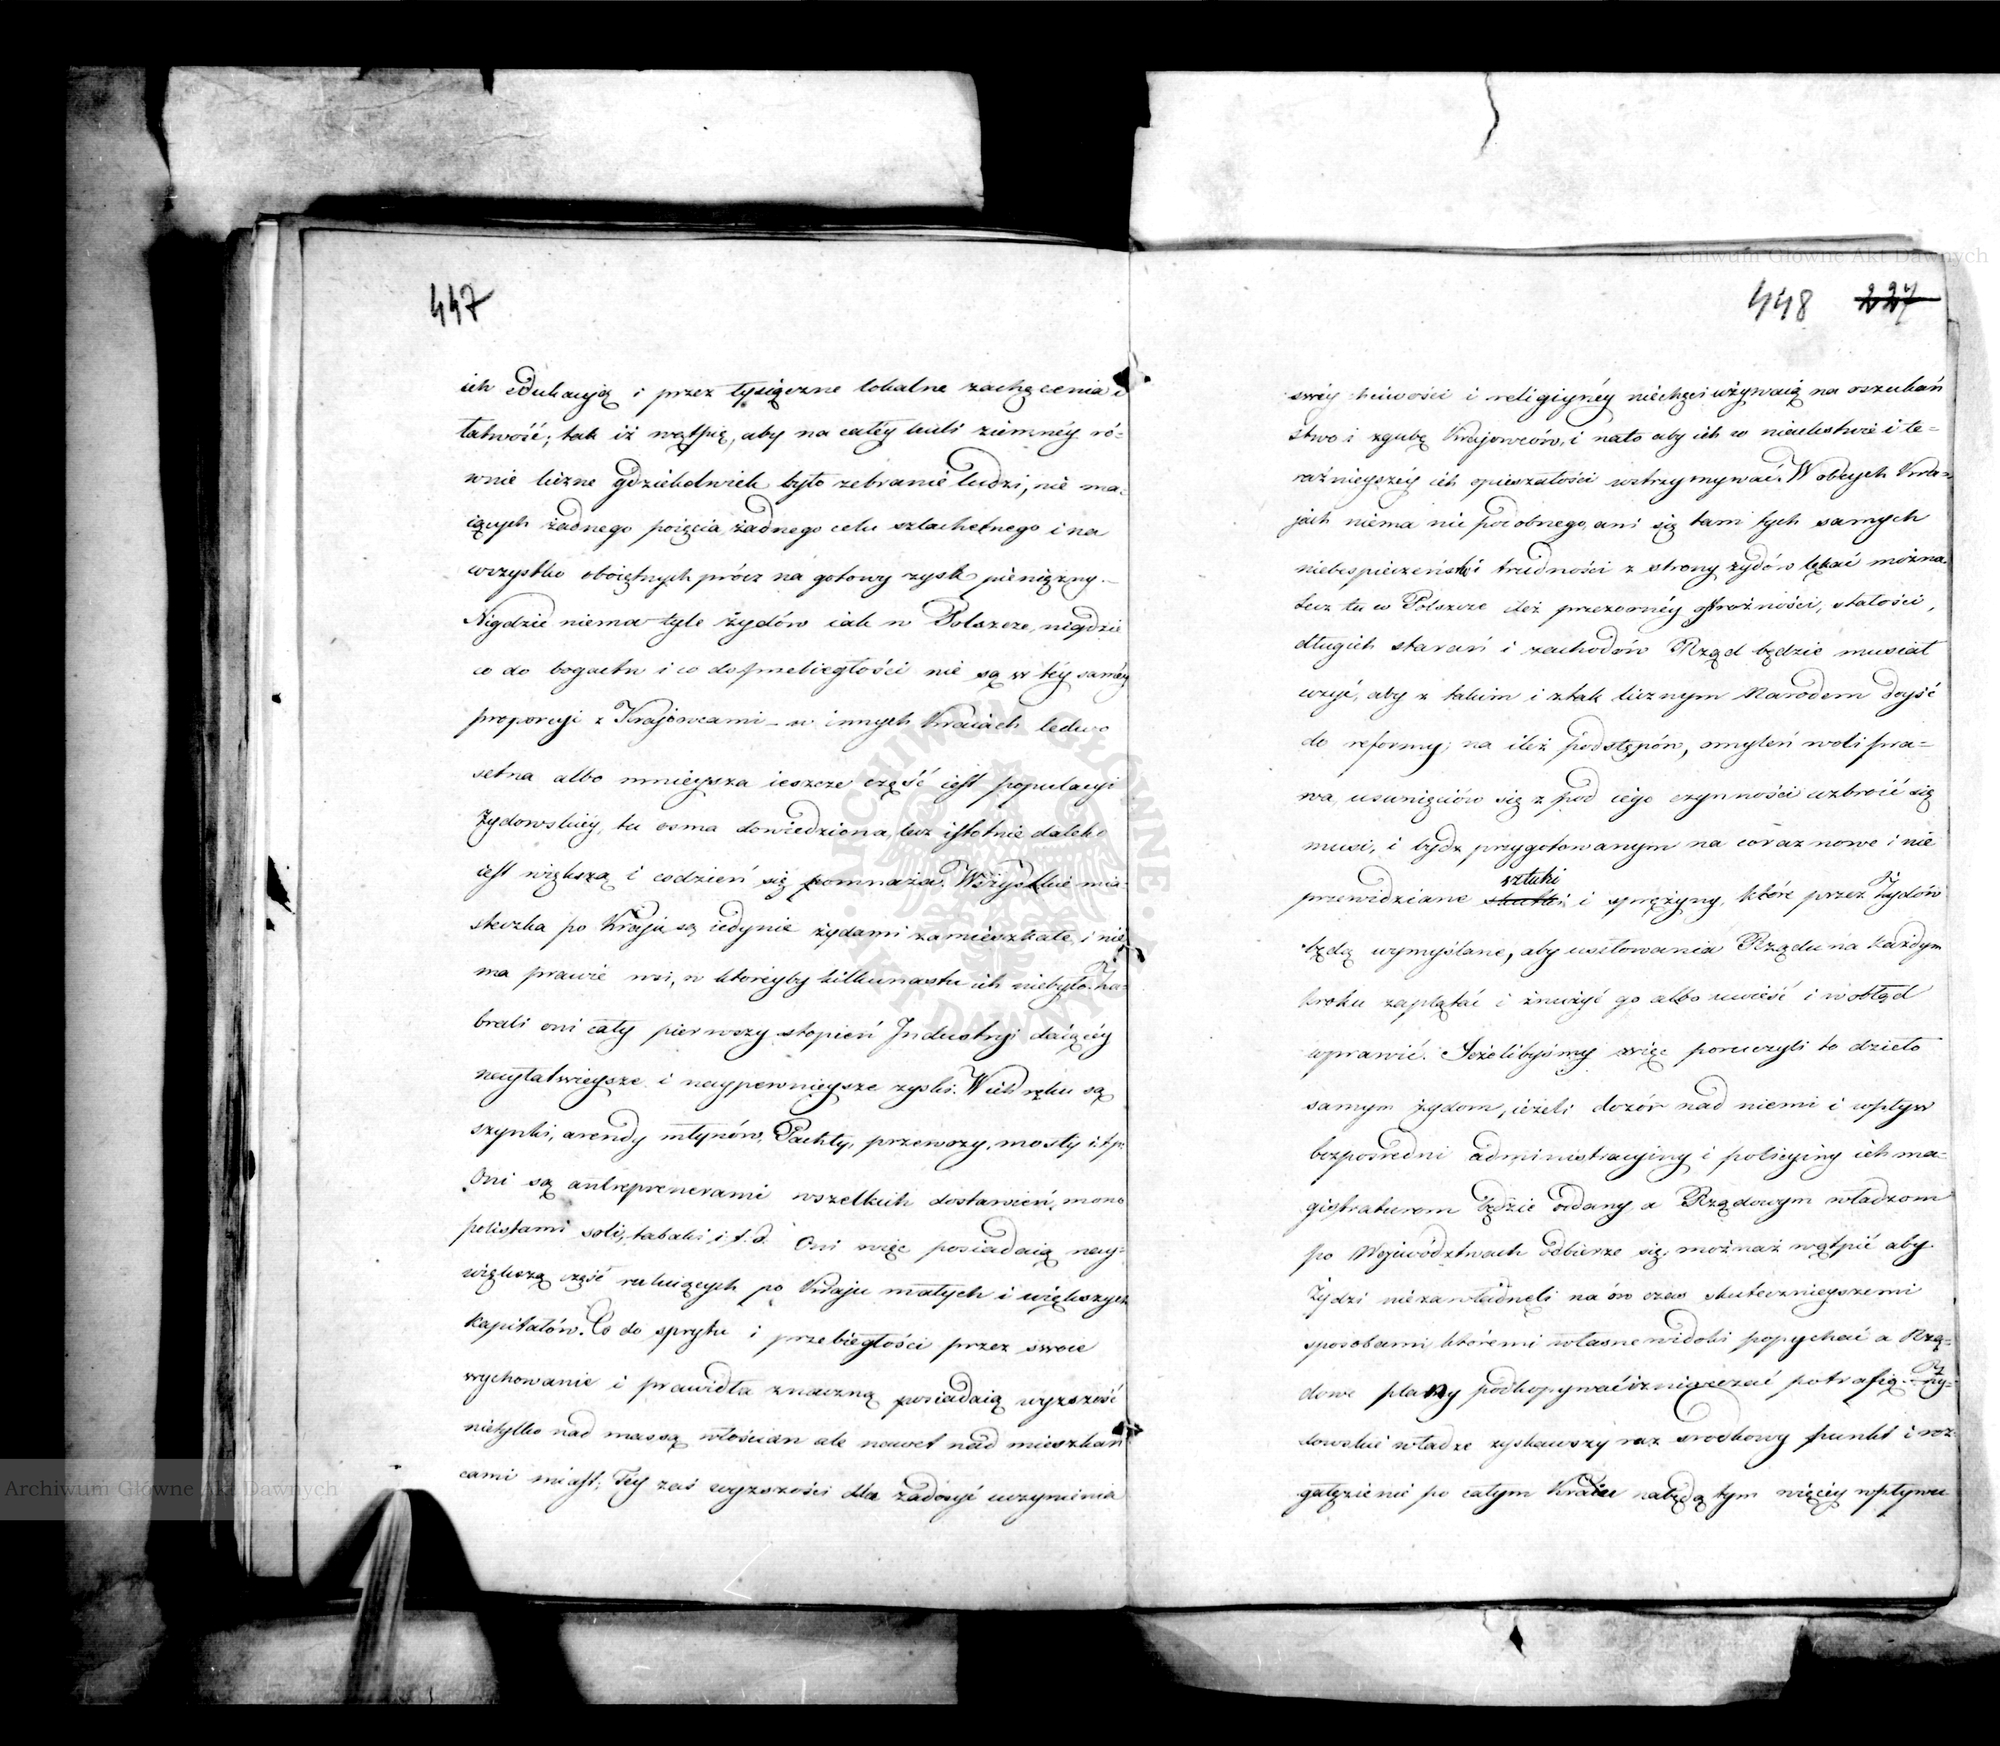 447
ich edukacyią i przez tysiączne lokalne zachęcenia i
łatwość; tak iż wątpię, aby na całéy kuli ziemnéy ró-
wnie liczne gdziekolwiek było zebranie ludzi, nie ma-
iących żadnego poięcia, żadnego celu szlachetnego i na
wszystko oboiętnych prócz na gotowy zysk pieniężny. —
Nigdzie niema tyle żydów iak w Polszcze, nigdzie
co do bogactw i co do przebiegłości nie są w téy saméy
proporcyi z Krajowcami — w innych Kraiach ledwo
setna albo mnieysza ieszcze część iest populacyi
Żydowskiéy, tu osma dowiedziona, lecz istotnie daleko
iest większą i codzień się pomnaża. Wszystkie mia-
steczka po Kraju są iedynie żydami zamieszkałe, i nie
ma prawie wsi, w któreyby kilkunastu ich niebyło. Za-
brali oni cały pierwszy stopień Industryi daiącéy
nayłatwieysze i naypewnieysze zyski. W ich ręku są
szynki, arendy młynów, Pachty, przewozy, mosty i t. p.
Oni są antreprenerami wszelkich dostawień, mono
polistami soli, tabaki i t. d. Oni więc posiadaią nay-
większą część ruluiących po Kraju małych i większych
kapitałów. Co do sprytu i przebiegłości przez swoie
wychowanie i prawidła znaczną posiadaią wyższość
nietylko nad massą włościan ale nawet nad mieszkań
cami miast; Téy zaś wyższości dla zadosyć uczynienia
448 227
swéy chciwości i religiynéy niechęci używaią na oszukań
stwo i zgubę Krajowców, i nato aby ich w nieuctwie i te-
raźnieyszéy ich opieszałości wstrzymywać. W obcych Kra-
jach niema nic podobnego, ani się tam tych samych
niebezpieczeństw i trudności z strony żydów lękać można.
Lecz tu w Polszcze ileż przezornéy ostrożności, stałości,
długich starań i zachodów Rząd będzie musiał
użyć, aby z takim i ztak licznym Narodem doyść
do reformy; na ileż podstępów, omyleń woli pra-
wa, usunięciów się z pod iego czynności uzbroić się
musi, i bydź przygotowanym na coraz nowe i nie
sztuki
przewidziane skutki i sprężyny, które przez Żydów
będą wymyślane, aby usiłowania Rządu na każdym
kroku zaplątać i znużyć go albo uwieść i w obłąd
wprawić. Jeżelibyśmy więc poruczyli to dzieło
samym żydom, ieżeli dozór nad niemi i wpływ
bezpośredni administracyiny i policyiny ich ma-
gistraturom będzie oddany, a Rządowym władzom
po Województwach odbierze się, możnaż wątpić aby
Żydzi niezawładnęli na ów czas skutecznieyszemi
sposobami któremi własne widoki popychać a Rzą-
dowe plany podkopywać i zniweczać potrafią. Ży-
dowskie władze zyskawszy raz srodkowy punkt i roz
gałęzienie po całym Kraiu nabędą tym więcéy wpływu
Archiwum Główne Akt Dawnych
Archiwum Główne Akt Dawnych
ARCHIWUM GŁÓWNE AKT DAWNYCH